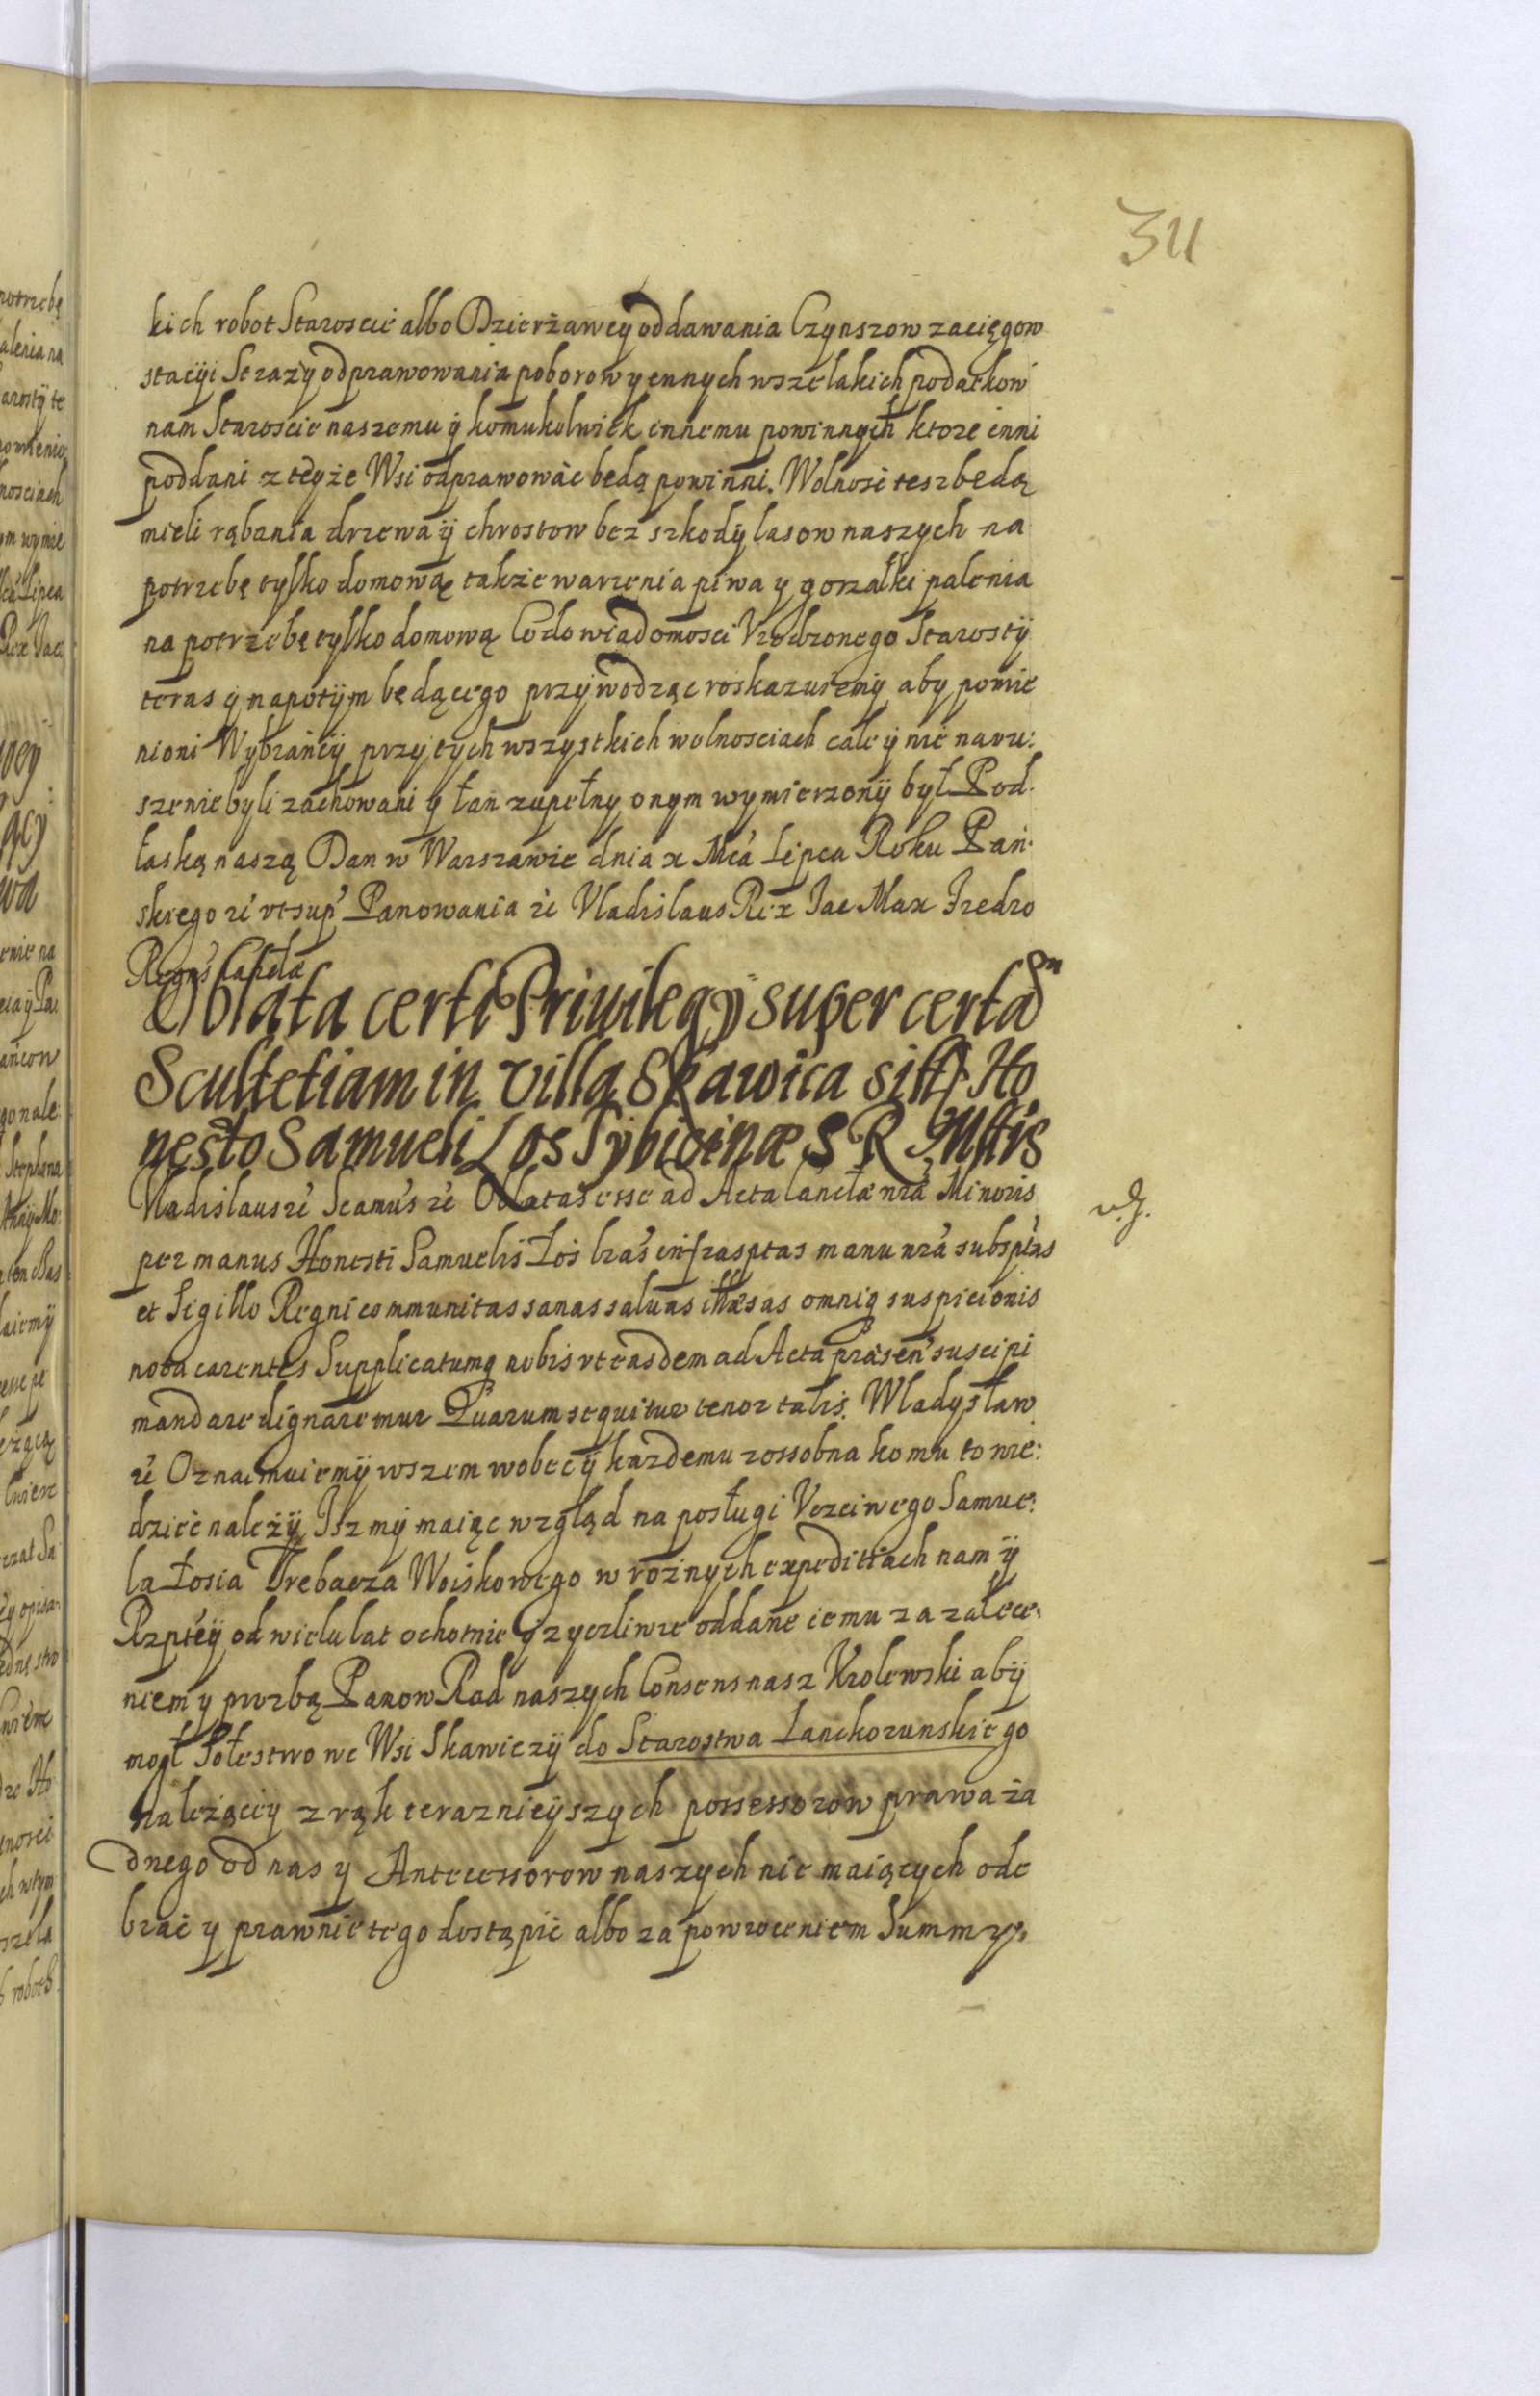 311
kich robot Staroscie albo Dzierżawcy oddawania Czynszow zaciągow
stacÿi Strażÿ odprawowania poborow y ennych wszelakich podatkow
nam Staroscie naszemu ÿ komukolwiek innemu powinnych ktore inni
poddani z teyże Wsi odprawować będą powinni. Wolność tesz będą
mieli rąbania drzewa ÿ chrostow bez szkodÿ lasow naszych na
potrzebę tylko domową także warzenia piwa y gorzałki palenia
na potrzebę tylko domową Co do wiadomosci Vrodzonego Starostÿ
teras y napotÿm będącego przÿwodząc roskazuiemÿ aby pomie
nioni Wybrańcÿ przy tych wszystkich wolnosciach cale ÿ nie naru:
szenie byli zachowani y łan zupełny onym wymierzonÿ był Pod
łaską naszą Dan w Warszawie dnia x Mca Lipca Roku Pań
skiego zc vt sup Panowania zc Vladislaus Rex Jac Max Fredro
Regns Canclå
Oblata certi Priuilegÿ super certa
Scultetiam in villa Skawica sitt Ho
nesto Samueli Los Tybicinæ S R Mttis
Vladislaus zc Scamus zc Oblatas esse ad Acta Cancłæ nrå Minoris
per manus Honesti Samuelis Łoś lras infrasptas manu nra subsptas
et Sigillo Regni communitas sanas saluas illæsas omniq suspicionis
nota carentes Supplicatumq nobis vt easdem ad Acta præsen suscipi
mandare dignaremur Quarum sequitur tenor talis. Władysław
zc Oznaimuiemÿ wszem wobec ÿ każdemu zossobna komu to wie:
dzieć należÿ Isz mÿ maiąc wzgląd na posługi Vczciwego Samue:
la Łosia Trebacza Woiskowego w rożnych expeditiach nam ÿ
Rzptey od wielu lat ochotnie y życzliwie oddane iemu za zalece:
niem y prozbą Panow Rad naszych Consens nasz Krolewski abÿ
mogł Sołestwo we Wsi Skawiczÿ do Starostwa Lanckorunskiego
należącey z rąk teraznieÿszych possessorow prawa ża
dnego od nas y Antecessorow naszych nie maiących ode
brać y prawnie tego dostąpić albo za powroceniem Summy